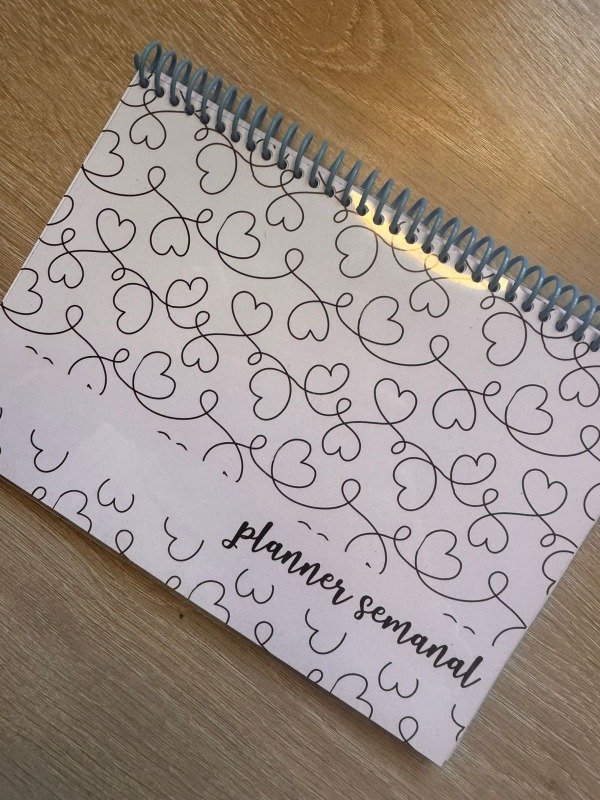 planner semanal